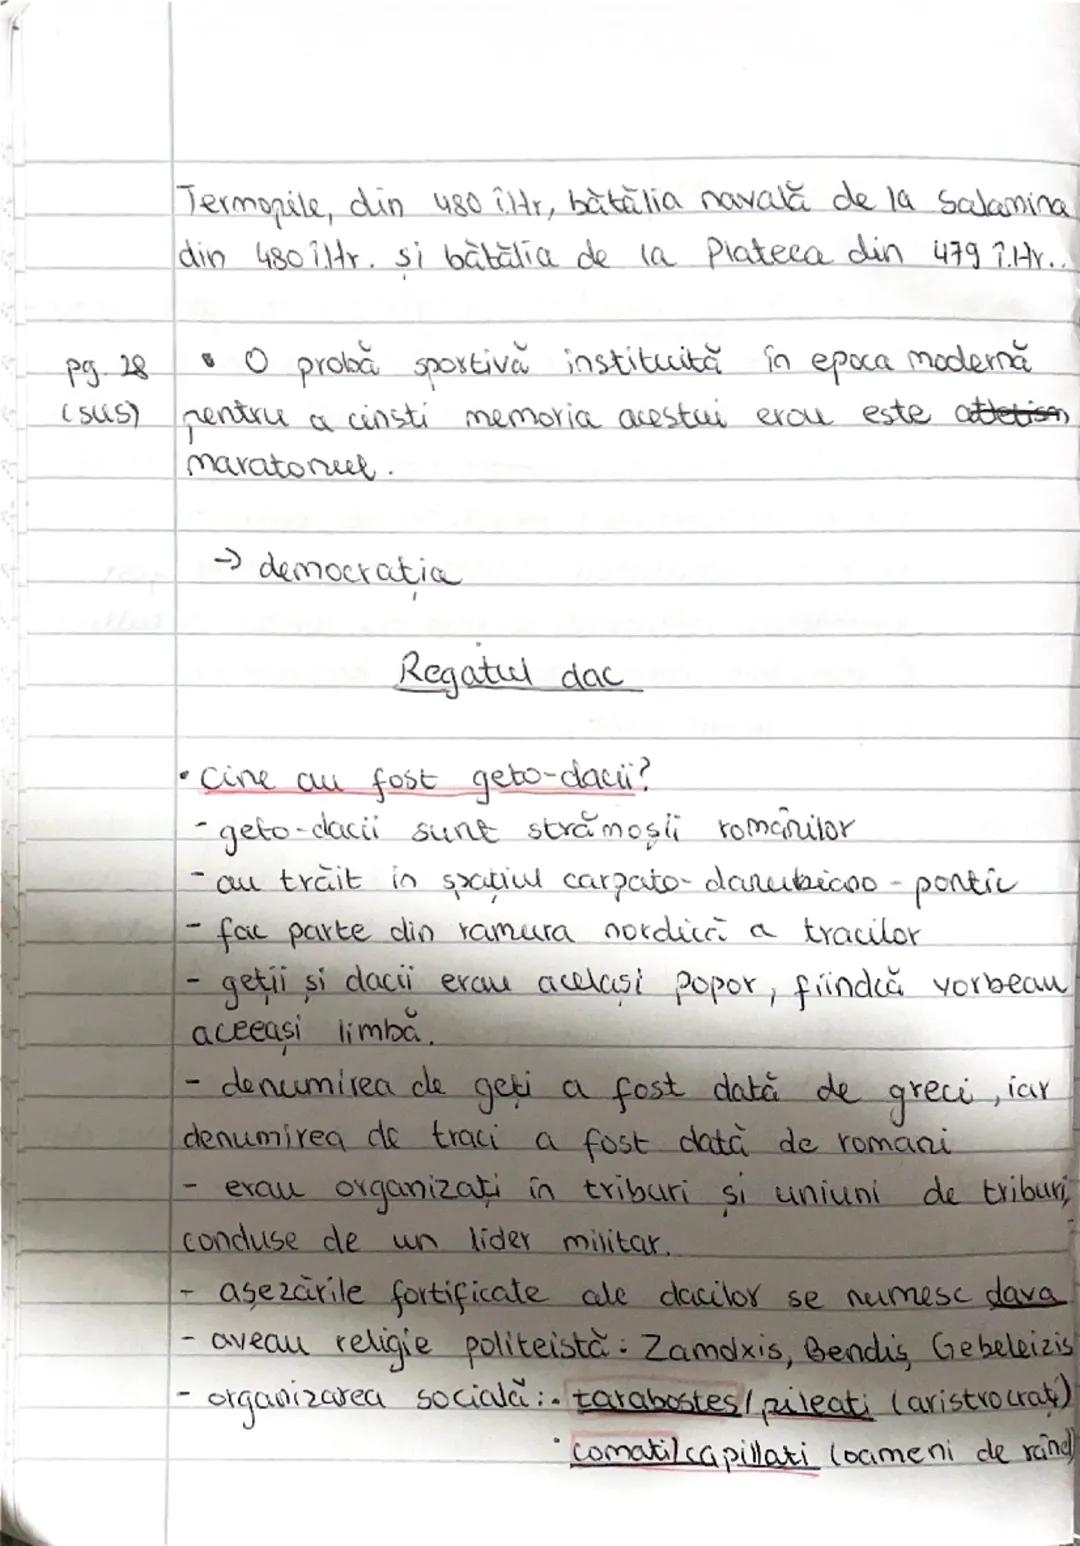 Termopile, din 480 î.Hr, bătălia navală de la Salamina
din 480 î.Hr. și bătălia de la Plateea din 479 î.Hr..
pg. 28 • O probă sportivă instituită în epoca modernă
(sus) pentru a cinsti memoria acestui erou este atletism
maratonul.
→ democrația
Regatul dac
• Cine au fost geto-dacii?
- geto-dacii sunt strămoșii românilor
- au trăit in spațiul carpato-danubiano-pontic
- fac parte din ramura nordică a tracilor
- geții și dacii erau același popor, fiindcă vorbeau
aceeași limbă.
- denumirea de geți a fost dată de greci, iar
denumirea de traci a fost dată de romani
- erau organizați în triburi și uniuni de triburi,
conduse de un lider militar.
- așezările fortificate ale dacilor se numesc dava
- aveau religie politeistă: Zamolxis, Bendis, Gebeleizis
- organizarea socială: • tarabostes/pileati (aristrocrați)
• comati/capillati (oameni de rând)